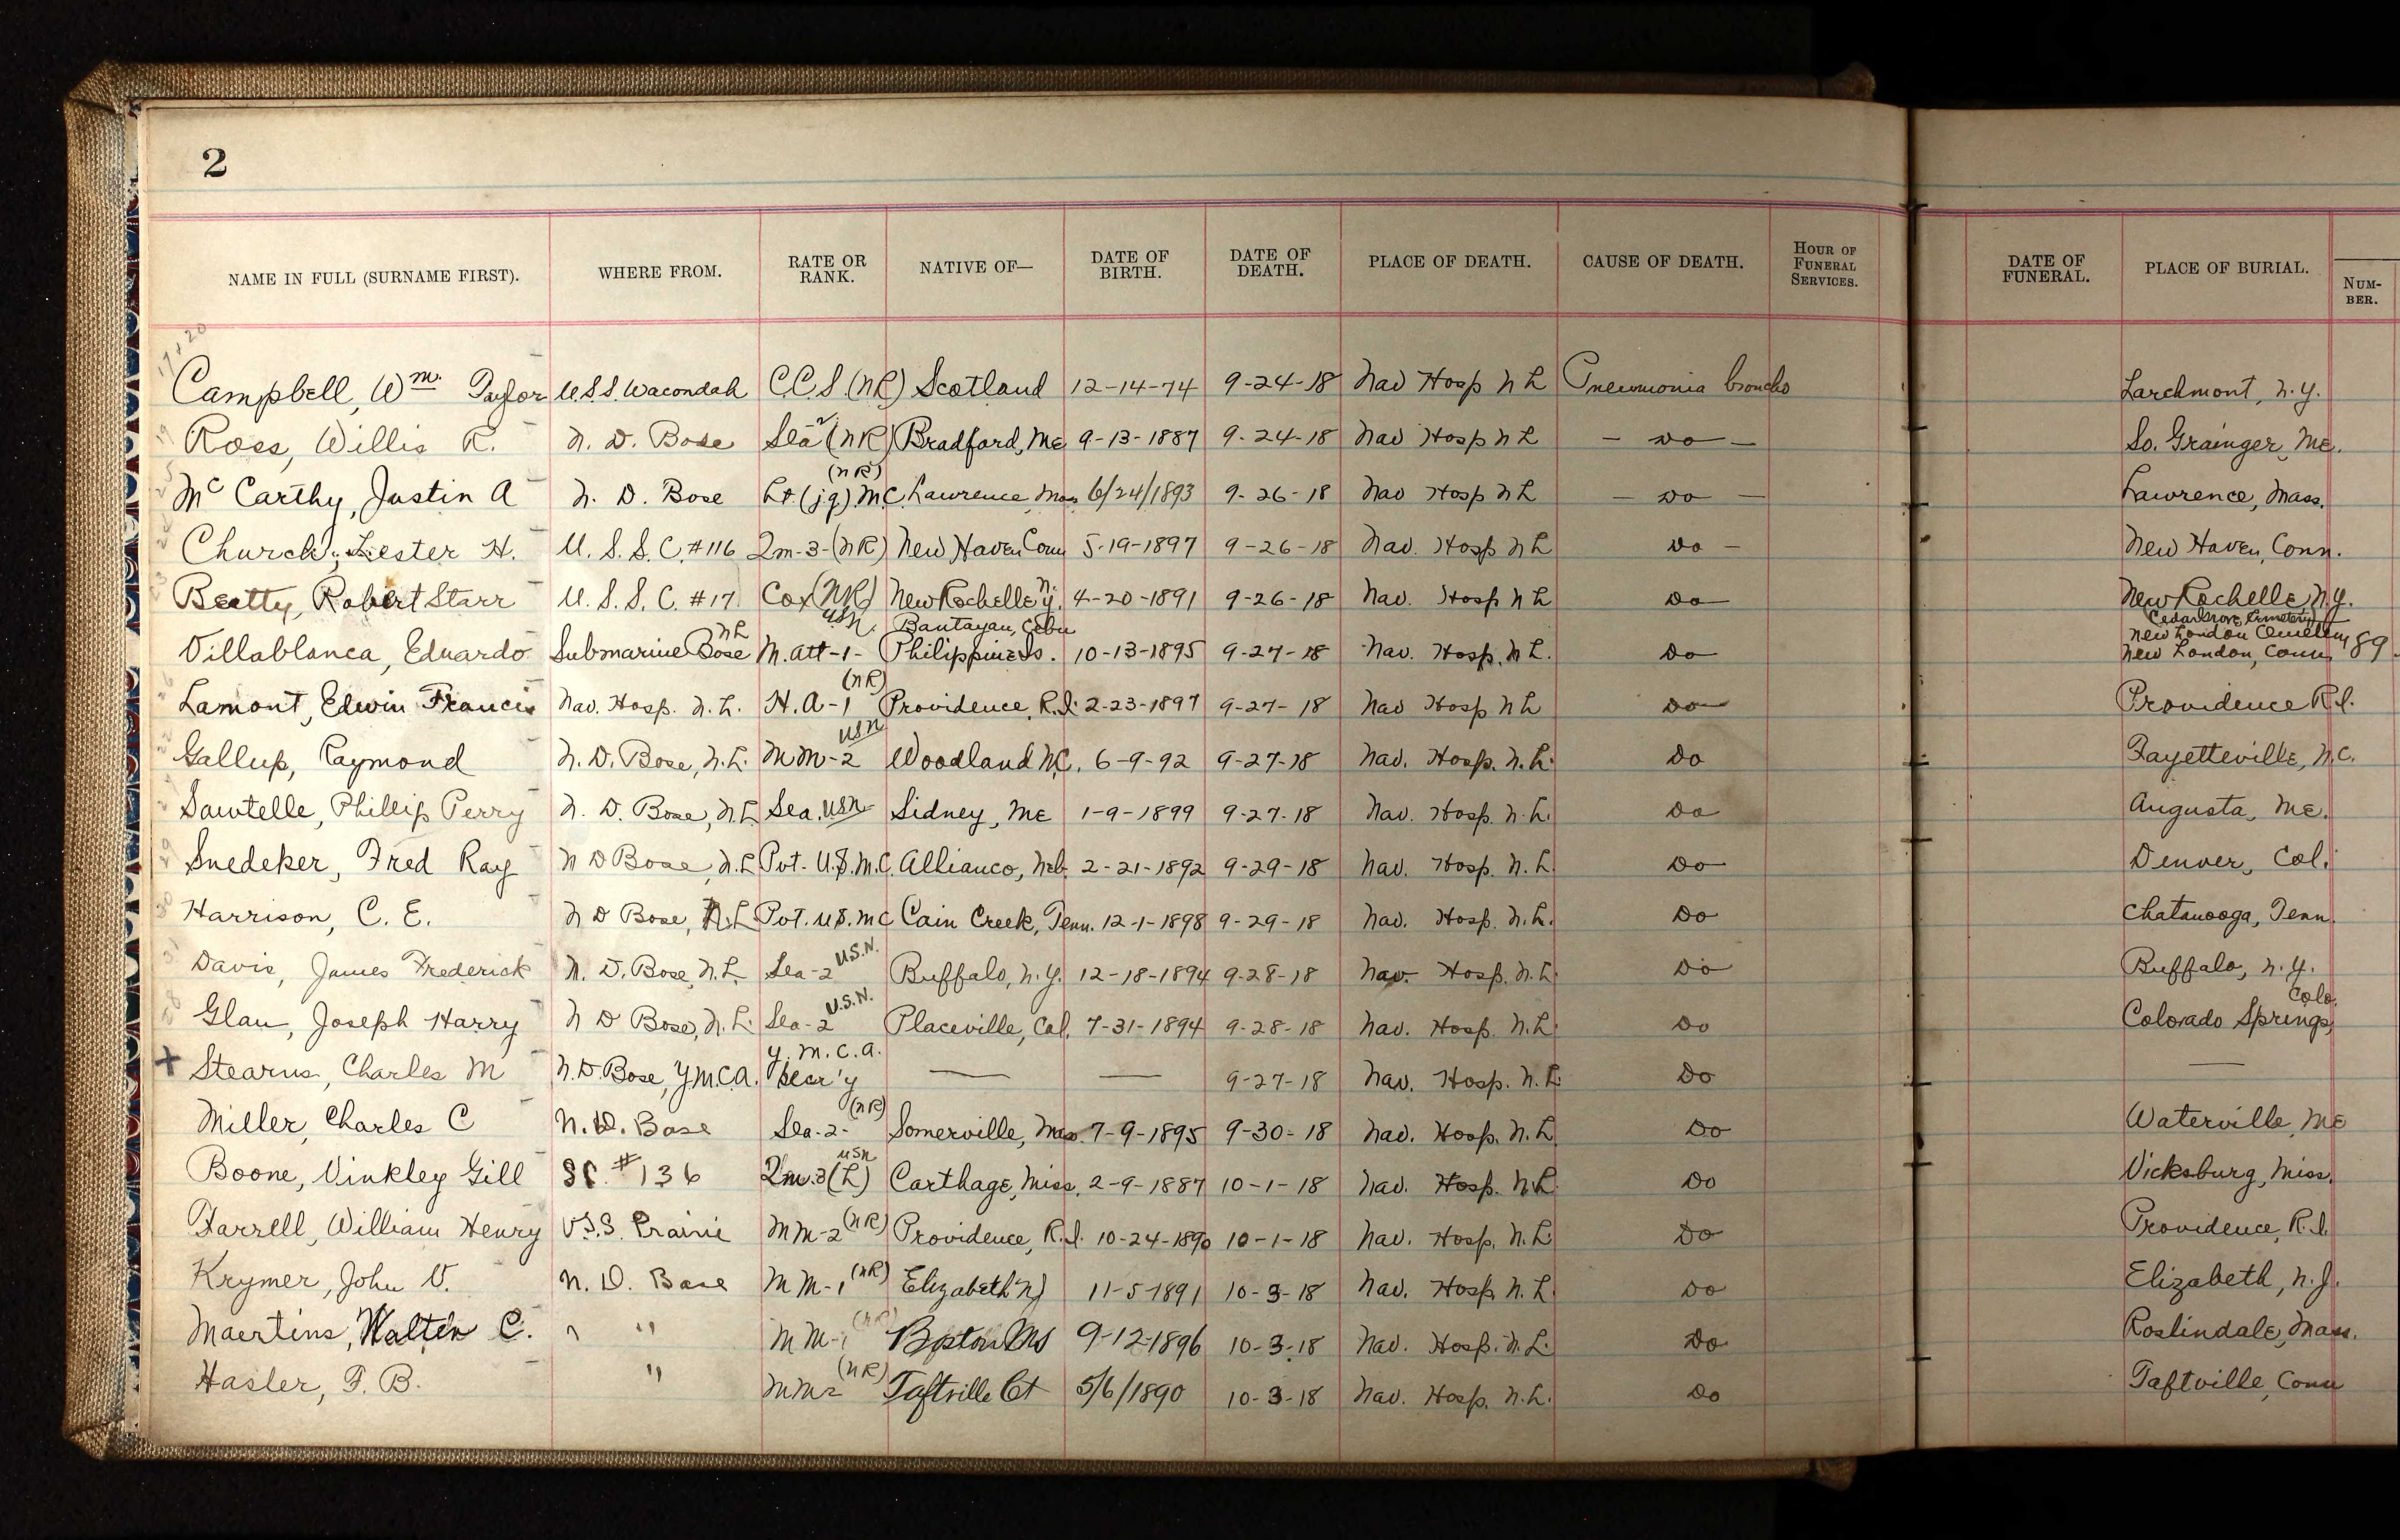 2
NAME IN FULL (SURNAME FIRST). WHERE FROM. RATE OR RANK. NATIVE OF— DATE OF BIRTH. DATE OF DEATH. PLACE OF DEATH. CAUSE OF DEATH. HOUR OF FUNERAL SERVICES. DATE OF FUNERAL. PLACE OF BURIAL. NUM-BER.
Campbell, Wm. Taylor U.S.S. Wacondah C.C.S. (NR) Scotland 12-14-74 9-24-18 Nav Hosp N L Pneumonia broncho Larchmont, N.Y.
Ross, Willis R. N. D. Base Sea 2 (NR) Bradford, ME 9-13-1887 9-24-18 Nav Hosp N L — Do — So. Grainger, ME.
McCarthy, Justin A N. D. Base Lt. (jg) M.C. (NR) Lawrence Mass 6/24/1893 9-26-18 Nav Hosp N L — Do — Lawrence, Mass.
Church, Lester H. U. S. S. C. #116 Qm-3-(NR) New Haven Conn 5-19-1897 9-26-18 Nav. Hosp N L Do — New Haven, Conn.
Beatty, Robert Starr U. S. S. C. #17 Cox (NR) New Rochelle N.Y. 4-20-1891 9-26-18 Nav. Hosp N L Do New Rochelle N.Y.
Villablanca, Eduardo Submarine Base NL M. Att-1- USN. Bantayan, Cebu Philippine Is. 10-13-1895 9-27-18 Nav. Hosp. N L. Do Cedar Grove Cemetery New London Cemetery New London, Conn, 89
Lamont, Edwin Francis Nav. Hosp. N. L. H. A-1 (NR) Providence, R.I. 2-23-1897 9-27-18 Nav Hosp N L Do Providence R.I.
Gallup, Raymond N. D. Base, N.L. MM-2 USN Woodland N.C. 6-9-92 9-27-18 Nav. Hosp. N.L. Do Fayetteville, N.C.
Sawtelle, Phillip Perry N. D. Base, N.L. Sea. USN Sidney, ME 1-9-1899 9-27-18 Nav. Hosp. N.L. Do Augusta, ME.
Snedeker, Fred Ray N D Base, N.L Pvt. U.S.M.C. Alliance, Neb. 2-21-1892 9-29-18 Nav. Hosp. N. L. Do Denver, Col.
Harrison, C. E. N D Base, N.L Pvt. U.S.M.C Cain Creek, Tenn. 12-1-1898 9-29-18 Nav. Hosp. N.L. Do Chatanooga, Tenn.
Davis, James Frederick N. D. Base, N.L. Sea-2 U.S.N. Buffalo, N.Y. 12-18-1894 9-28-18 Nav. Hosp. N.L. Do Buffalo, N.Y.
Glau, Joseph Harry N D Base, N.L. Sea-2 U.S.N. Placeville, Cal. 7-31-1894 9-28-18 Nav. Hosp. N.L. Do Colorado Springs, Colo.
+ Stearns, Charles M N.D. Base, Y.M.C.A. Y.M.C.A. Secr'y — — 9-27-18 Nav. Hosp. N.L. Do —
Miller, Charles C N. D. Base Sea-2- (NR) Somerville, Mass. 7-9-1895 9-30-18 Nav. Hosp. N.L Do Waterville, ME
Boone, Vinkley Gill SC. #136 Qm.3 (L) USN Carthage, Miss. 2-9-1887 10-1-18 Nav. Hosp. N.L Do Vicksburg, Miss.
Farrell, William Henry U.S.S. Prairie MM-2 (NR) Providence, R.I. 10-24-1890 10-1-18 Nav. Hosp. N.L. Do Providence, R.I.
Krymer, John V. N. D. Base MM-1 (NR) Elizabeth NJ 11-5-1891 10-3-18 Nav. Hosp. N.L. Do Elizabeth, N.J.
Maertins, Walter C. " " MM-1 (NR) Boston Ms 9-12-1896 10-3-18 Nav. Hosp. N.L. Do Roslindale, Mass.
Hasler, F. B. " MM2 (NR) Taftville Ct 5/6/1890 10-3-18 Nav. Hosp. N.L. Do Taftville, Conn